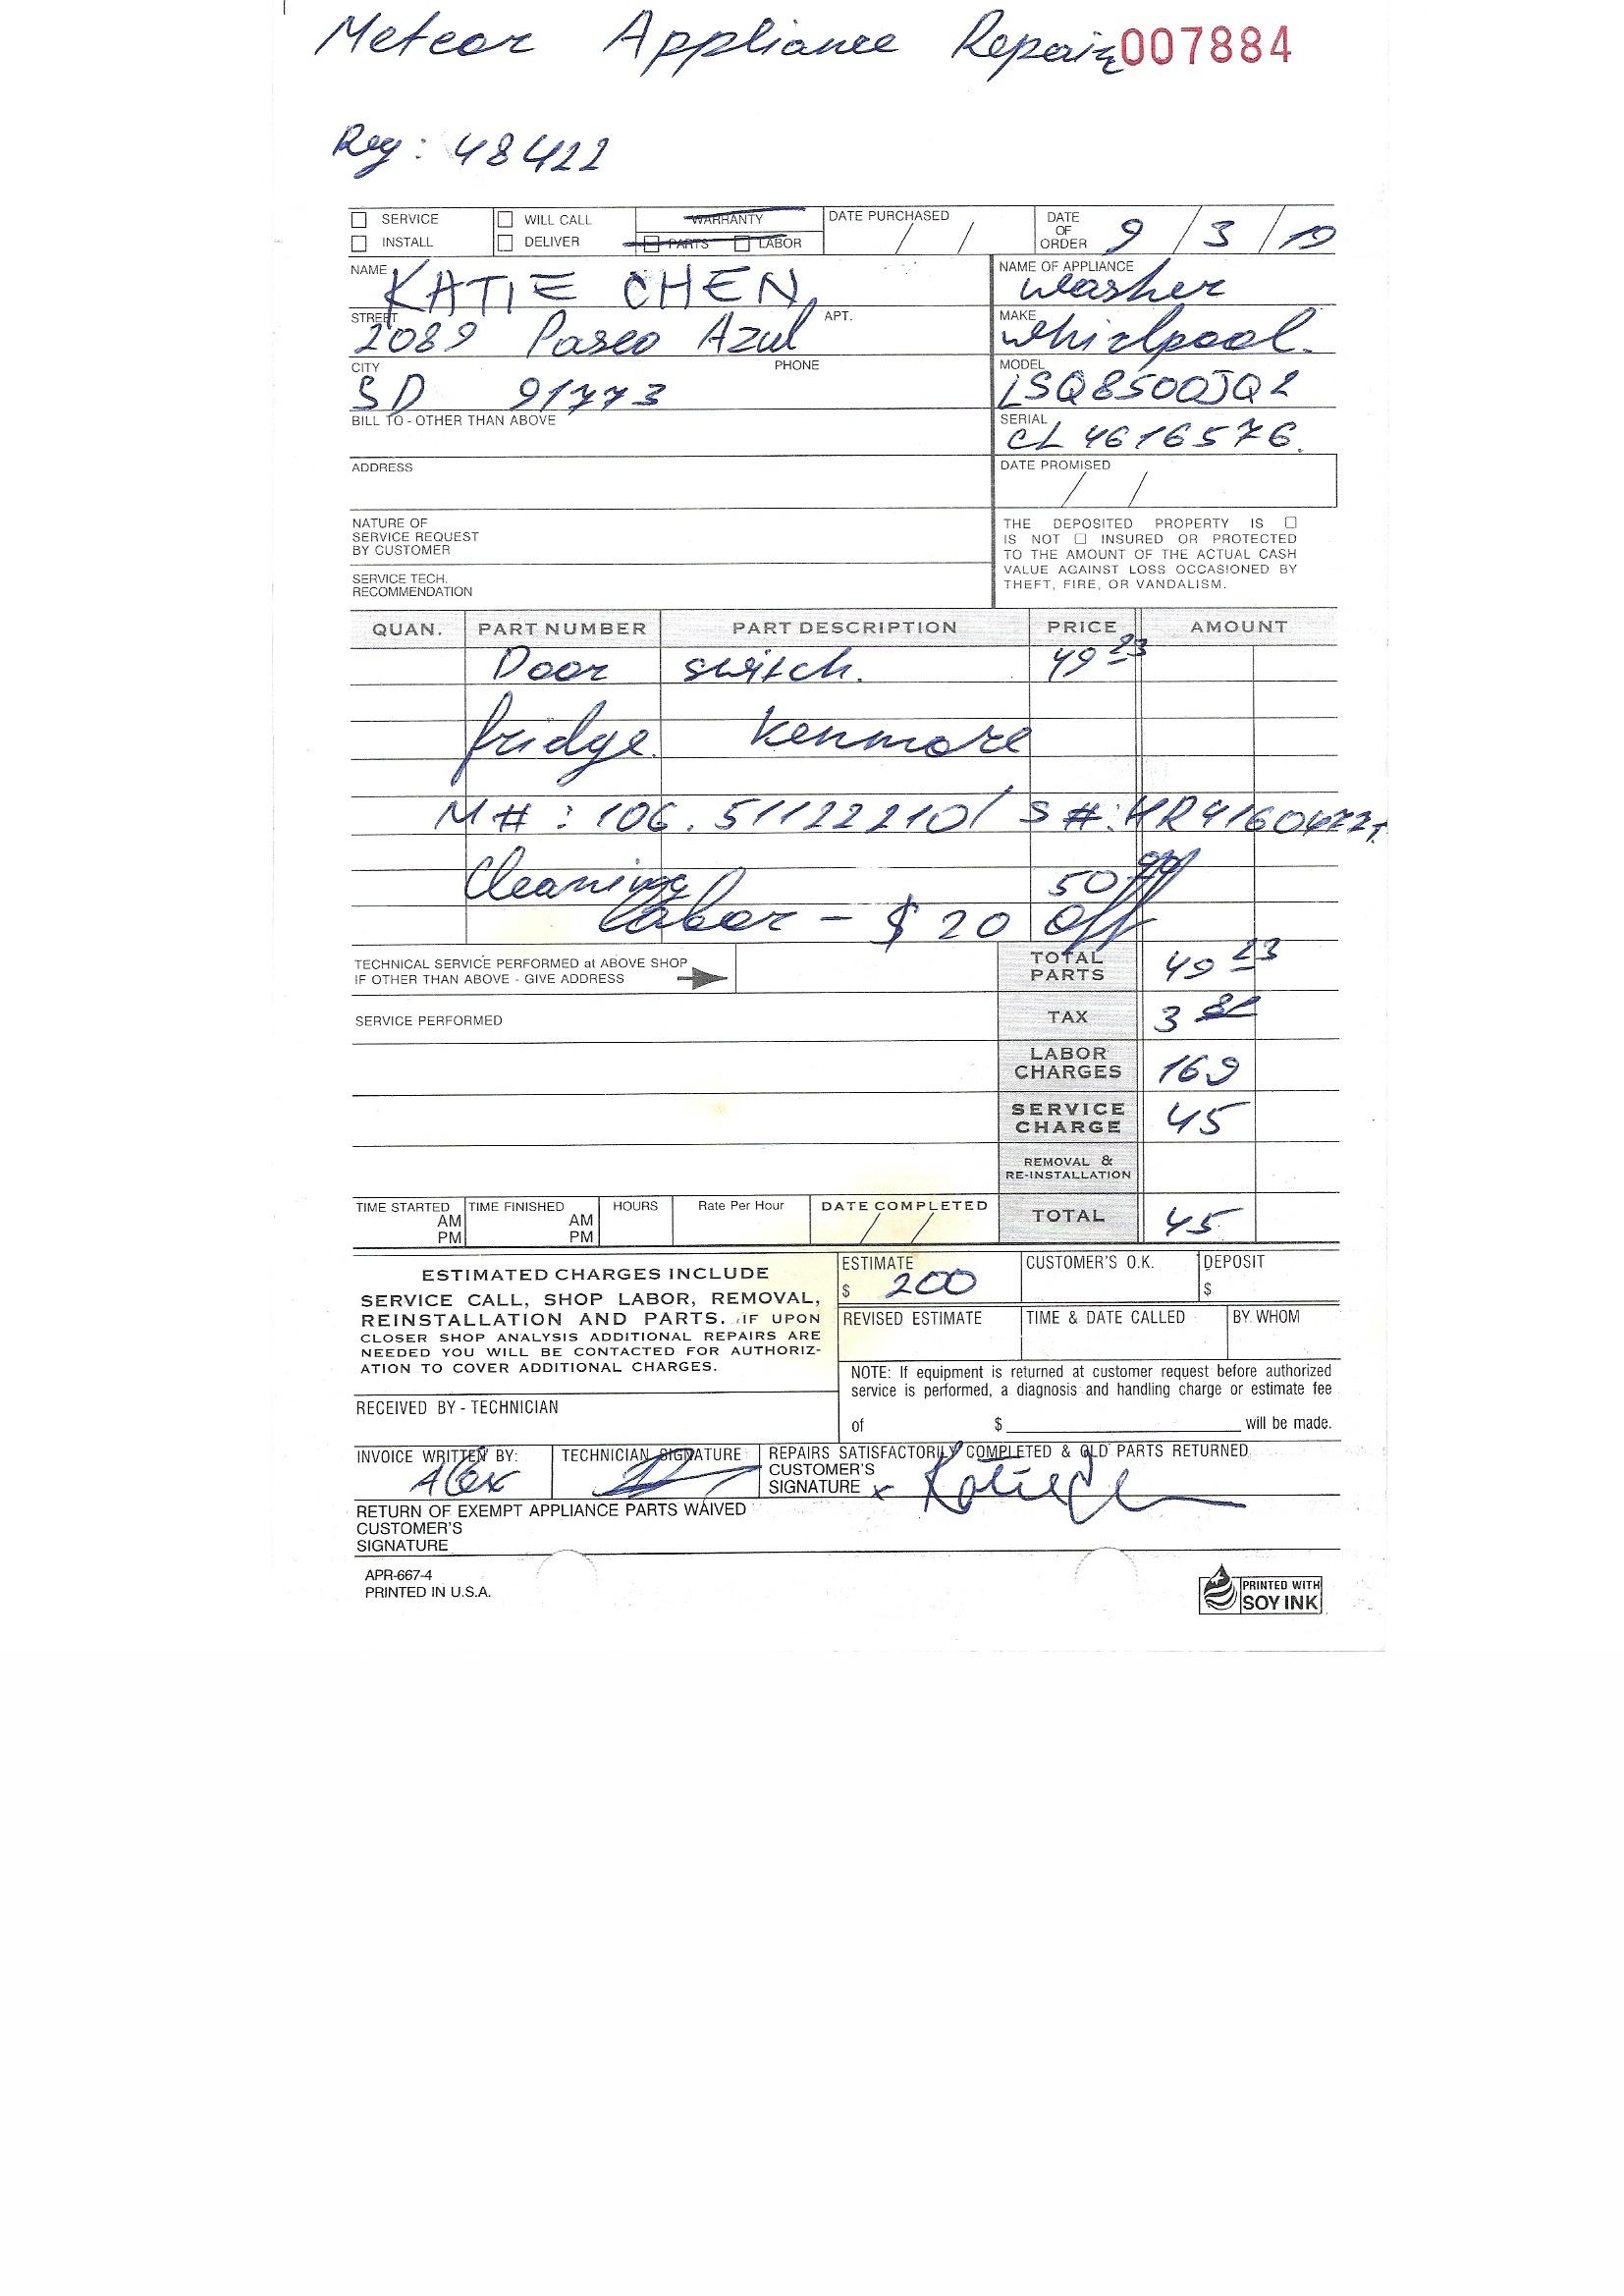 Meteor Appliance Repair 007884
Reg: 48422
SERVICE WILL CALL WARRANTY DATE PURCHASED / / DATE OF ORDER 9 / 3 / 19
INSTALL DELIVER PARTS LABOR
NAME KATIE CHEN NAME OF APPLIANCE washer
STREET 2089 Paseo Azul APT. MAKE whirlpool.
CITY SD 91773 PHONE MODEL LSQ8500JQ2
BILL TO - OTHER THAN ABOVE SERIAL CL 4616576.
ADDRESS DATE PROMISED / /
NATURE OF
SERVICE REQUEST
BY CUSTOMER
SERVICE TECH.
RECOMMENDATION
THE DEPOSITED PROPERTY IS
IS NOT INSURED OR PROTECTED
TO THE AMOUNT OF THE ACTUAL CASH
VALUE AGAINST LOSS OCCASIONED BY
THEFT, FIRE, OR VANDALISM.
QUAN. PART NUMBER PART DESCRIPTION PRICE AMOUNT
Door switch. 49 23
fridge kenmore
M# : 106. 51122210 / S #:
Cleaning 50 off
labor - $ 20 off
TECHNICAL SERVICE PERFORMED at ABOVE SHOP
IF OTHER THAN ABOVE - GIVE ADDRESS
TOTAL PARTS 49 23
SERVICE PERFORMED TAX 3
LABOR CHARGES 169
SERVICE CHARGE 45
REMOVAL & RE-INSTALLATION
TIME STARTED AM PM TIME FINISHED AM PM HOURS Rate Per Hour DATE COMPLETED / / TOTAL 45
ESTIMATED CHARGES INCLUDE
SERVICE CALL, SHOP LABOR, REMOVAL,
REINSTALLATION AND PARTS. IF UPON
CLOSER SHOP ANALYSIS ADDITIONAL REPAIRS ARE
NEEDED YOU WILL BE CONTACTED FOR AUTHORIZ-
ATION TO COVER ADDITIONAL CHARGES.
ESTIMATE $ 200 CUSTOMER'S O.K. DEPOSIT $
REVISED ESTIMATE TIME & DATE CALLED BY WHOM
NOTE: If equipment is returned at customer request before authorized
service is performed, a diagnosis and handling charge or estimate fee
of $ will be made.
RECEIVED BY - TECHNICIAN
INVOICE WRITTEN BY: Alex TECHNICIAN SIGNATURE REPAIRS SATISFACTORILY COMPLETED & OLD PARTS RETURNED
CUSTOMER'S
SIGNATURE x
RETURN OF EXEMPT APPLIANCE PARTS WAIVED
CUSTOMER'S
SIGNATURE
APR-667-4
PRINTED IN U.S.A.
PRINTED WITH
SOY INK